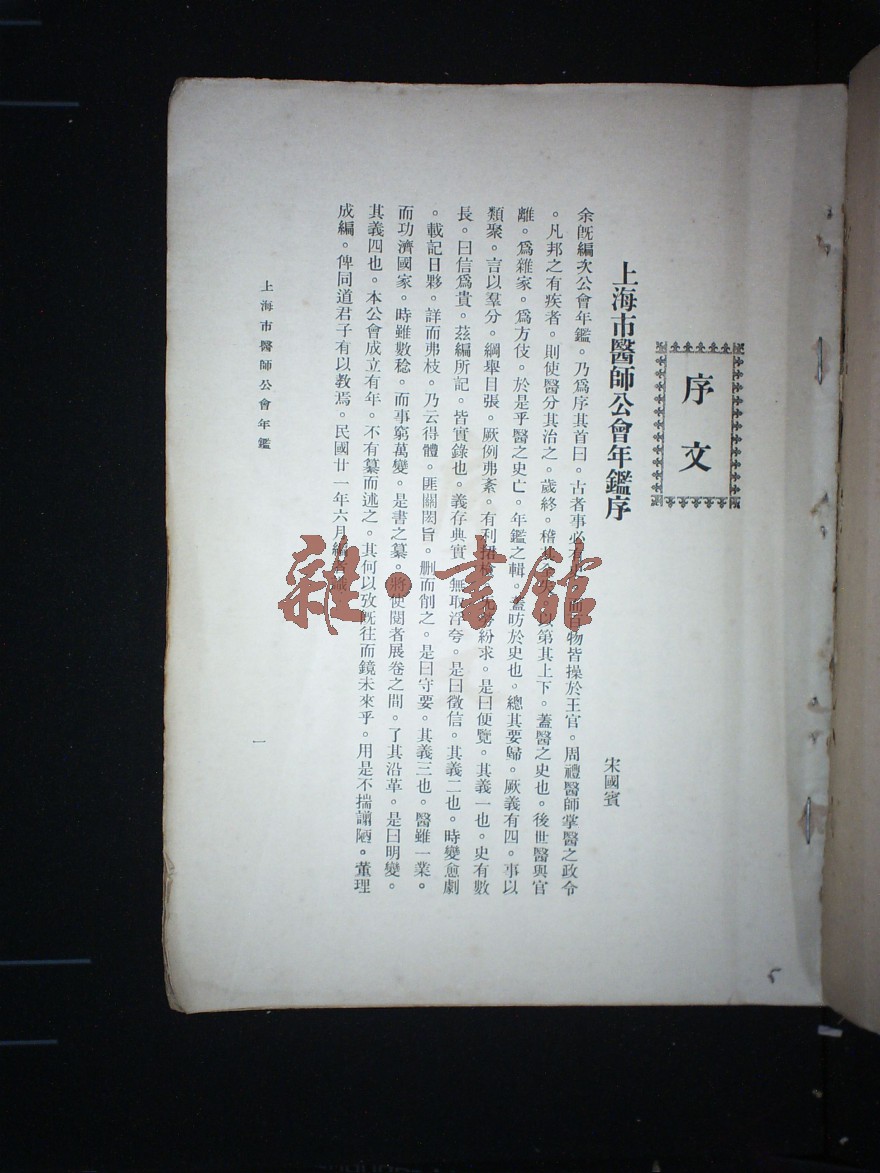 序文
上海市醫師公會年鑑序
宋國賓
余旣編次公會年鑑。乃爲序其首曰。古者事必有 而百物皆操於王官。周禮醫師掌醫之政令
。凡邦之有疾者。則使醫分其治之。歲終。稽其 以第其上下。蓋醫之史也。後世醫與官
離。爲雜家。爲方伎。於是乎醫之史亡。年鑑之輯。蓋昉於史也。總其要歸。厥義有四。事以
類聚。言以羣分。綱舉目張。厥例弗紊。有利 紛求。是曰便覽。其義一也。史有數
長。曰信爲貴。茲編所記。皆實錄也。義存典實。無取浮夸。是曰徵信。其義二也。時變愈劇
。載記日夥。詳而弗枝。乃云得體。匪關閎旨。删而削之。是曰守要。其義三也。醫雖一業。
而功濟國家。時雖數稔。而事窮萬變。是書之纂。將使閱者展卷之間。了其沿革。是曰明變。
其義四也。本公會成立有年。不有纂而述之。其何以攷旣往而鏡未來乎。用是不揣謭陋。董理
成編。俾同道君子有以敎焉。民國廿一年六月編者
上海市醫師公會年鑑
一
5
雜·書館